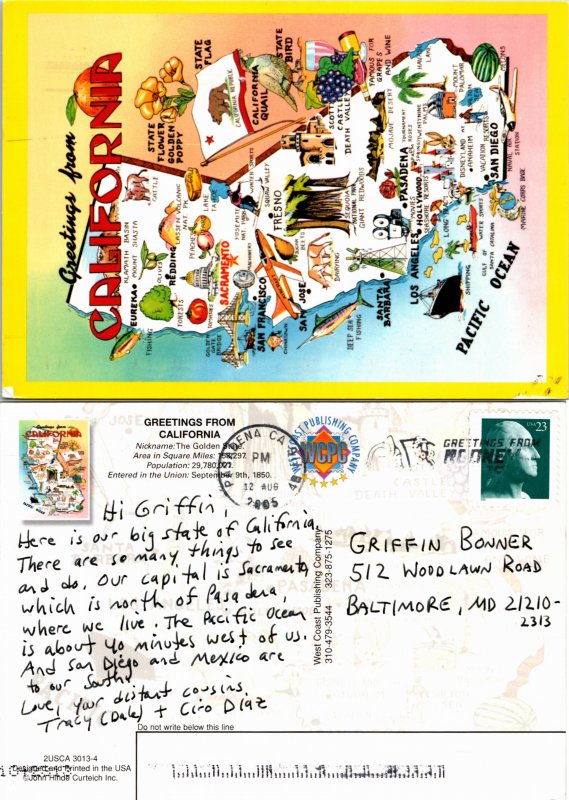 Greetings from
CALIFORNIA
STATE FLAG
STATE BIRD
CALIFORNIA QUAIL
STATE FLOWER GOLDEN POPPY
CALIFORNIA REPUBLIC
FAMOUS FOR GRAPES AND WINE
SCOTTY'S CASTLE
DEATH VALLEY
MOJAVE DESERT
MOUNT PALOMAR
MELONS
CATTLE
KLAMATH BASIN
MOUNT SHASTA
LASSEN VOLCANIC NAT. PK.
LAKE TAHOE
SQUAW VALLEY
YOSEMITE NAT. PARK
FRESNO
SEQUOIA NATIONAL PARK
GIANT REDWOODS
PASADENA
TOURNAMENT OF ROSES
HOLLYWOOD
MOVIES
LOS ANGELES
DISNEYLAND AT ANAHEIM
VACATION RESORTS
SAN DIEGO
NAVAL AIR STATION
MARINE CORPS BASE
EUREKA
REDDING
OLIVES
PEACHES
FORESTS
TOMATOES
SACRAMENTO
GOLDEN GATE BRIDGE
SAN FRANCISCO
CHINATOWN
SAN JOSE
BEETS
FISHING
DEEP SEA FISHING
SANTA BARBARA
SHIPPING
WATER SPORTS
GULF OF SANTA CATALINA
PACIFIC OCEAN
Greetings from
CALIFORNIA
GREETINGS FROM
CALIFORNIA
Nickname: The Golden State.
Area in Square Miles: 158,297.
Population: 29,780,021.
Entered in the Union: September 9th, 1850.
PASADENA CA
PM
12 AUG
2005
WEST COAST PUBLISHING COMPANY
WCPC
GREETINGS FROM
USA 23
Hi Griffin,
Here is our big state of California.
There are so many things to see
and do. Our capital is Sacramento,
which is north of Pasadena,
where we live. The Pacific Ocean
is about 40 minutes west of us.
And San Diego and Mexico are
to our South.
Love, your distant cousins,
Tracy (Dale) + Ciro Diaz
West Coast Publishing Company
310-479-3544 323-875-1275
GRIFFIN BONNER
512 WOODLAWN ROAD
BALTIMORE, MD 21210-
2313
Do not write below this line
2USCA 3013-4
Designed and Printed in the USA
©John Hinde Curteich Inc.